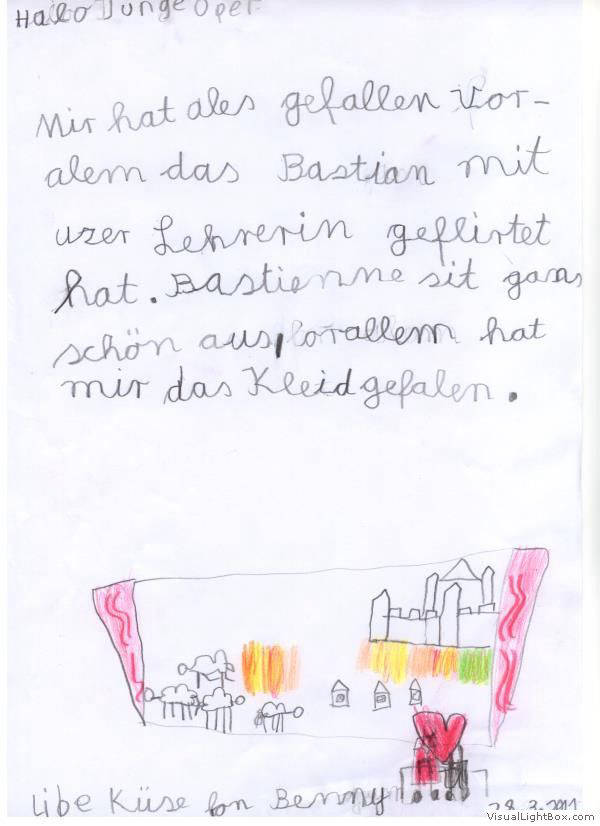 Halo Junge Oper
Mir hat ales gefallen Vor-
alem das Bastian mit
uzer Lehrerin geflirtet
hat. Bastienne sit gans
schön aus, vorallem hat
mir das Kleid gefalen.
Libe Küse fon Benny
28.3.2011
VisualLightBox.com